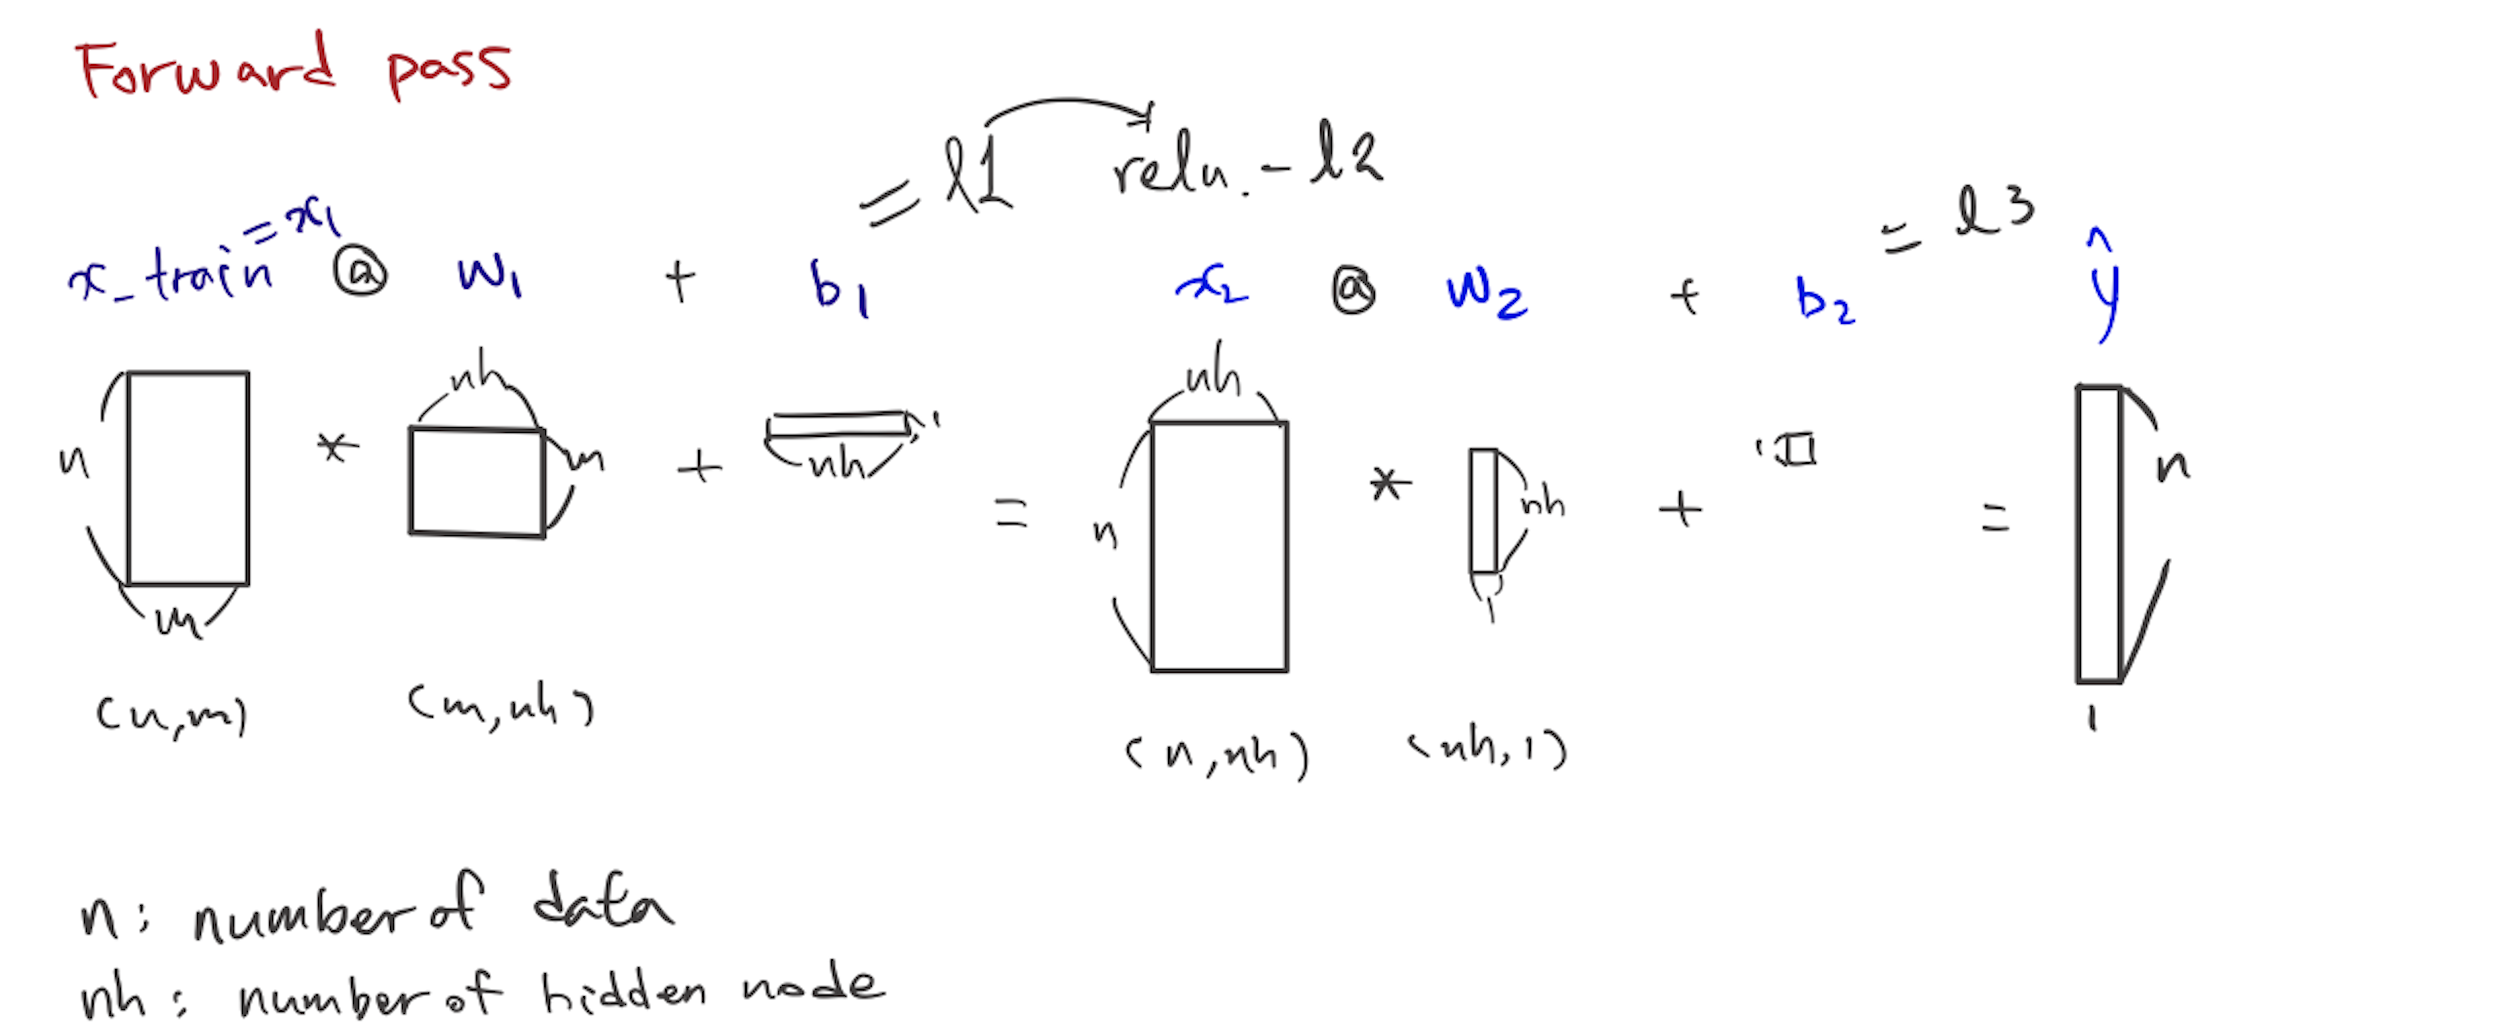 Forward pass
= l1 relu. - l2
= x1
= l3
x_train @ w1 + b1 x2 @ w2 + b2 ŷ
nh nh
n * m + nh 1 = n * nh + 1 = n
m 1 1
(n,m) (m,nh) (n,nh) (nh,1)
n: number of data
nh: number of hidden node